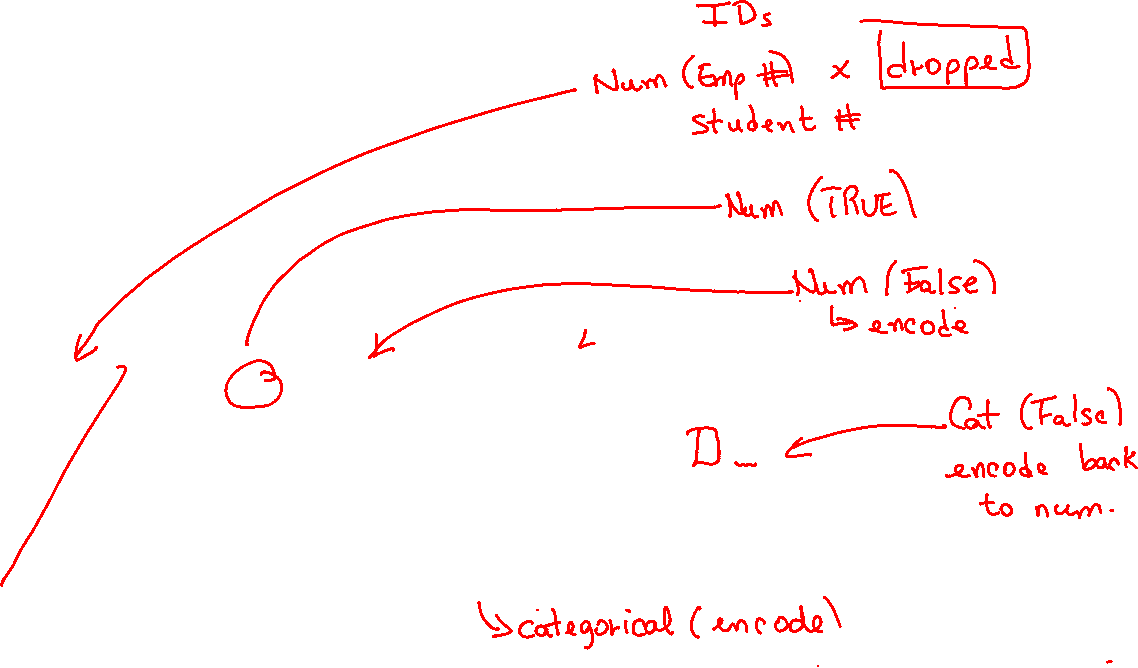 IDs
Num (Emp #) × dropped
Student #
Num (TRUE)
Num (False)
↳ encode
Cat (False)
D_
encode back
to num.
↳ categorical (encode)